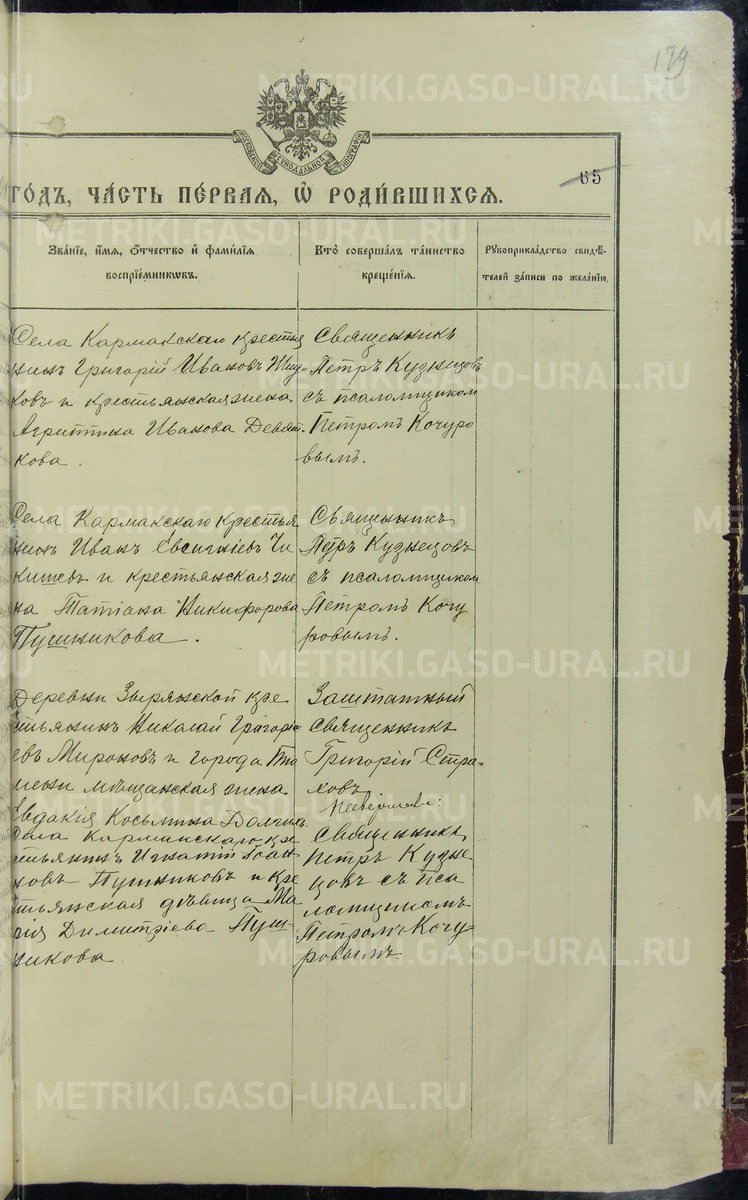 179
МОСКОВСКОЙ СИНОДАЛЬНОЙ ТИПОГРАФІИ
65
ГО́ДЪ, ЧА́СТЬ ПЕ́РВАЯ, Ѡ҆ РОДИ́ВШИХСЯ.
Зва́нїе, и҆́мя, ѻ҆́тчество и҆ фами́лїя
воспрїе́мникѡвъ.
Кто̀ соверша́лъ та́инство
креще́нїя.
Рꙋкоприкла́дство свидѣ́-
телей за́писи по жела́нїю.
Села Кармакскаго крестья
нинъ Григорій Ивановъ
ковъ и крестьянская жена
Агриппина Иванова Девят
кова.
Священникъ
Петръ Кузнецовъ
съ псаломщикомъ
Петромъ Кочуро
вымъ.
Села Кармакскаго крестья
нинъ Иванъ Евсигніевъ Чи
кишевъ и крестьянская же
на Татіана Никифорова
Пушникова.
Священникъ
Петръ Кузнецовъ
съ псаломщикомъ
Петромъ Кочу
ровымъ.
Деревни Зырянской кре
стьянинъ Николай Григорі
евъ Мироновъ и города Тю
мени мѣщанская жена
Евдакія Косьмина
Заштатный
священникъ
Григорій Стра-
ховъ
Села Кармакскаго кре
стьянинъ Игнатій Іоан
новъ Пушниковъ и кре
стьянская дѣвица Ма
рія Димитріева Пуш-
никова.
Священникъ
Петръ Кузне
цовъ съ пса
ломщикомъ
Петромъ Кочу-
ровымъ.
METRIKI.GASO-URAL.RU